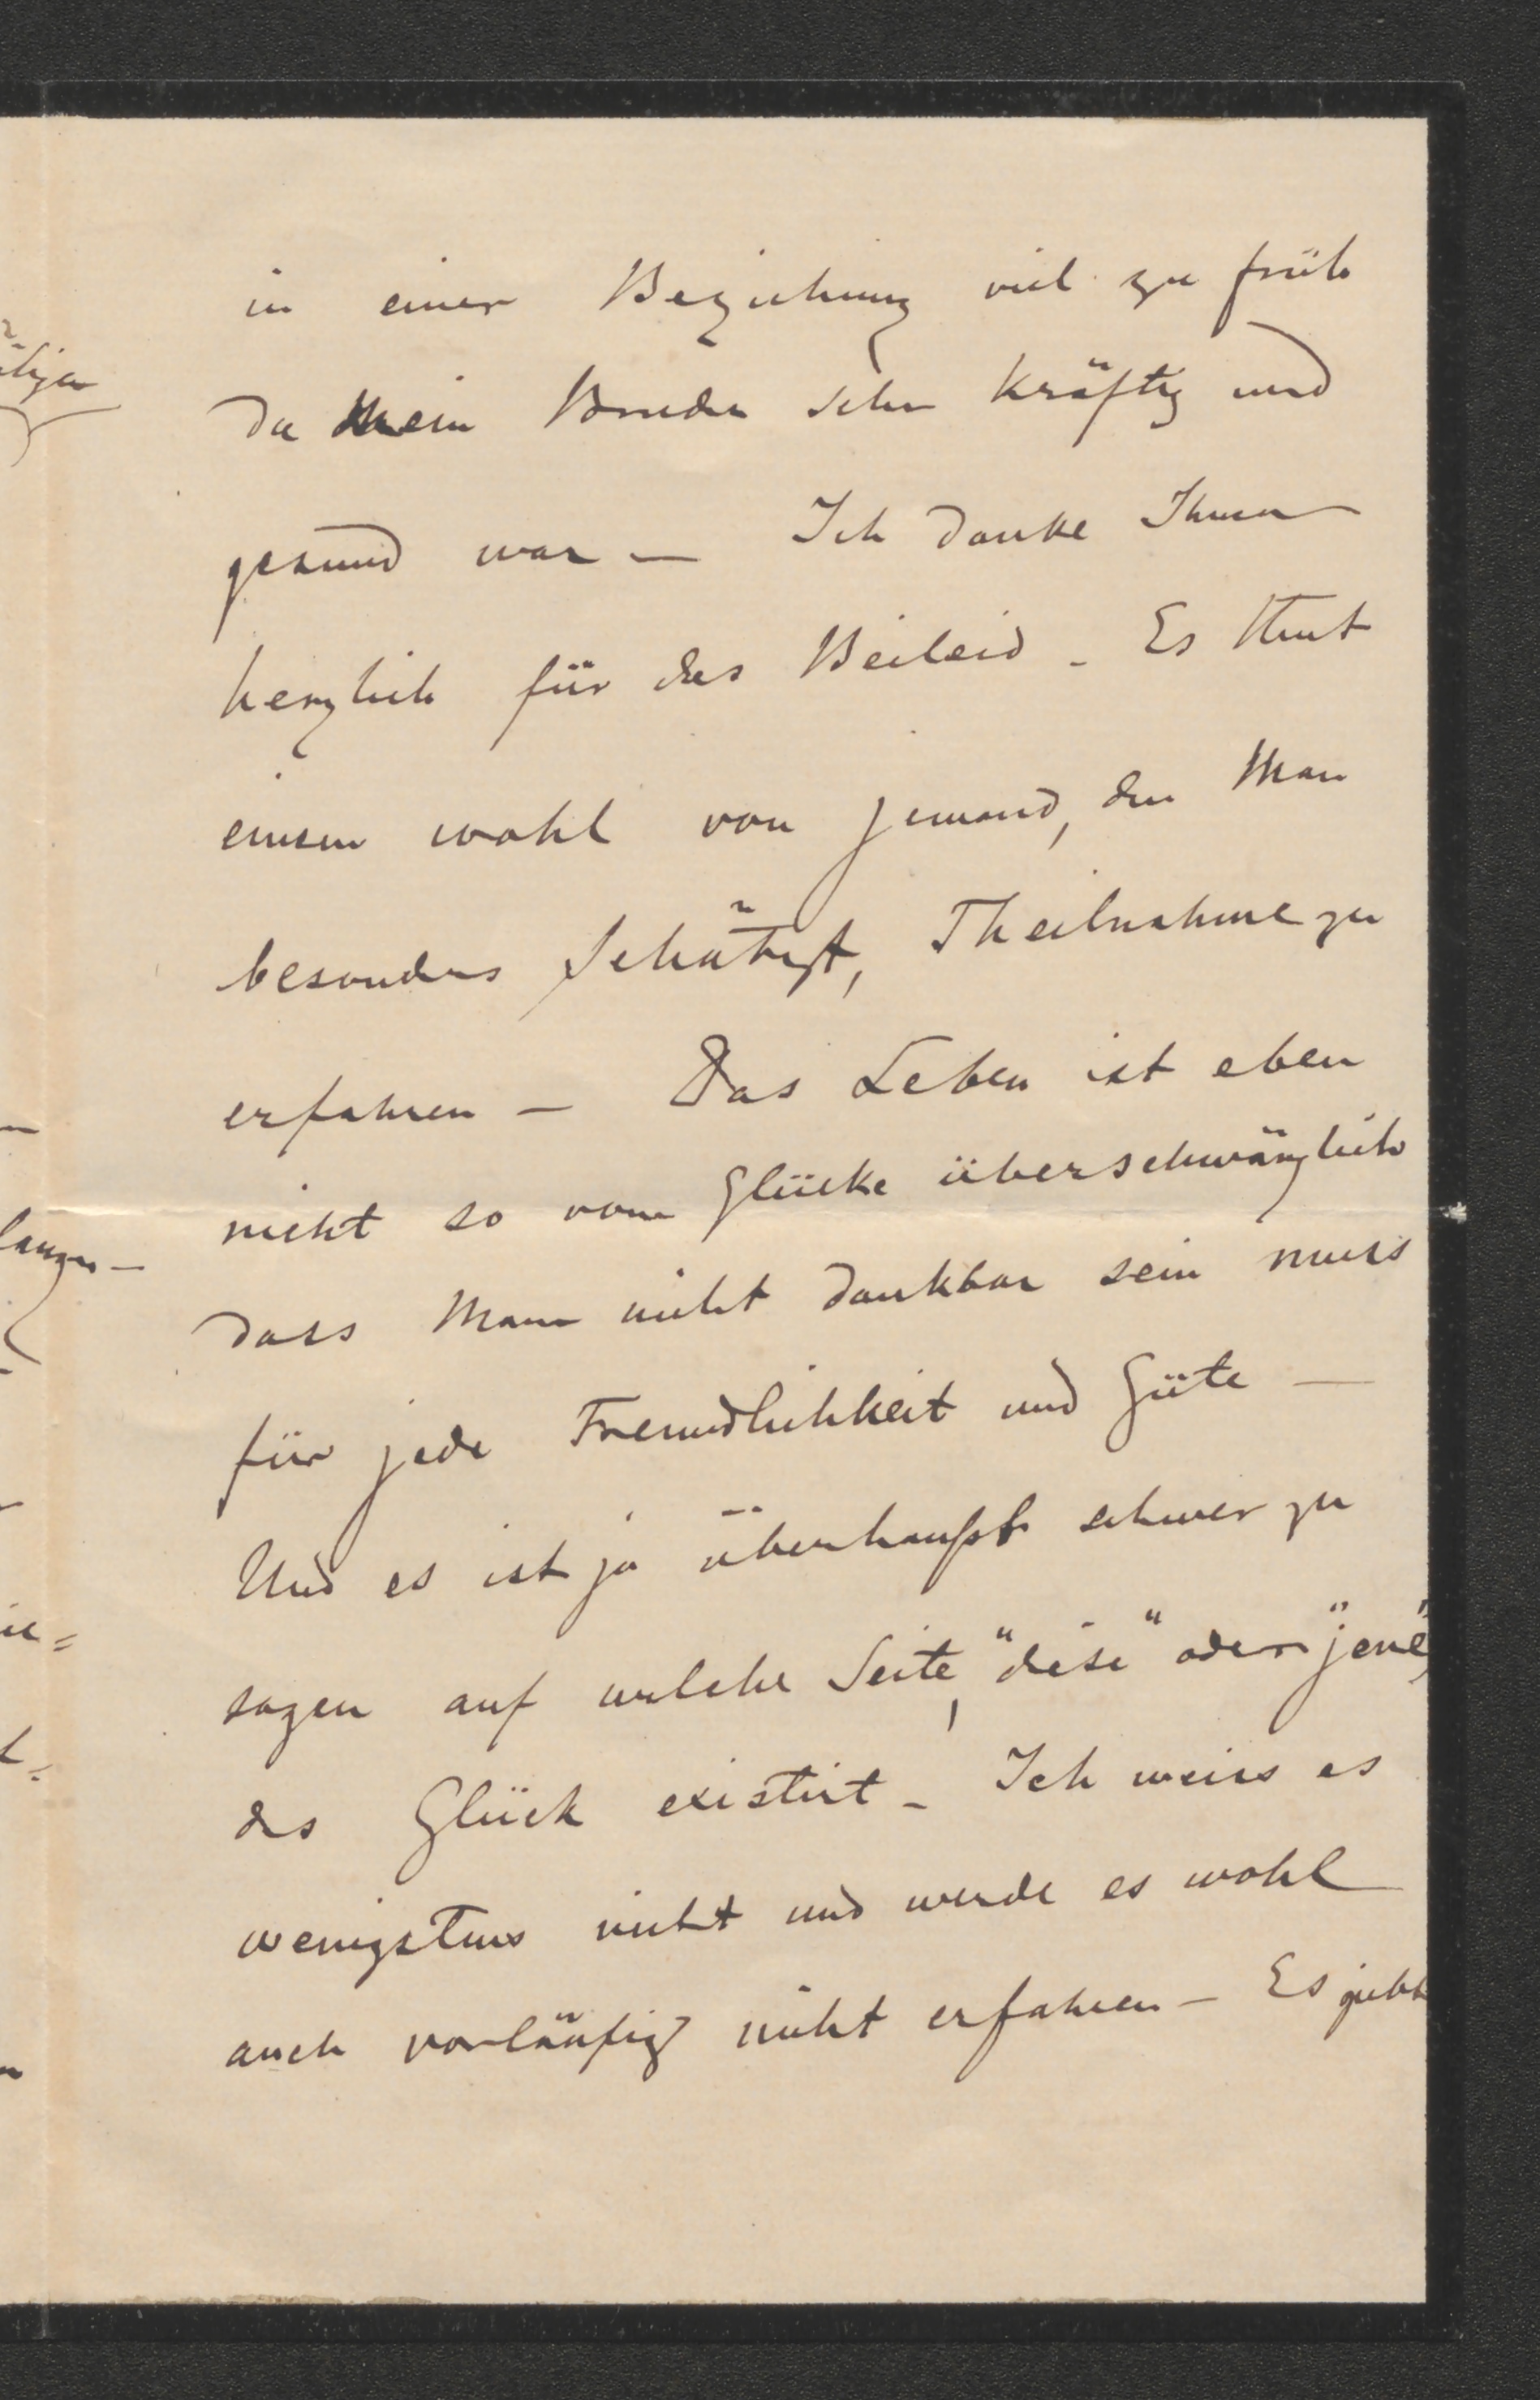 in einer Beziehung viel zu früh
da mein Bruder sehr kräftig und
gesund war — Ich danke Ihnen
herzlich für das Beileid – Es thut
einem wohl von jemand, den Man
besonders schätzt, Theilnahme zu
erfahren — Das Leben ist eben
nicht so vom Glücke überschwänglich
dass Man nicht dankbar sein muss
für jede Freundlichkeit und Güte —
Und es ist ja überhaupt schwer zu
sagen auf welche Seite, "diese" oder "jene",
das Glück existirt – Ich weiss es
wenigstens nicht und werde es wohl
auch vorläufig nicht erfahren – Es giebt